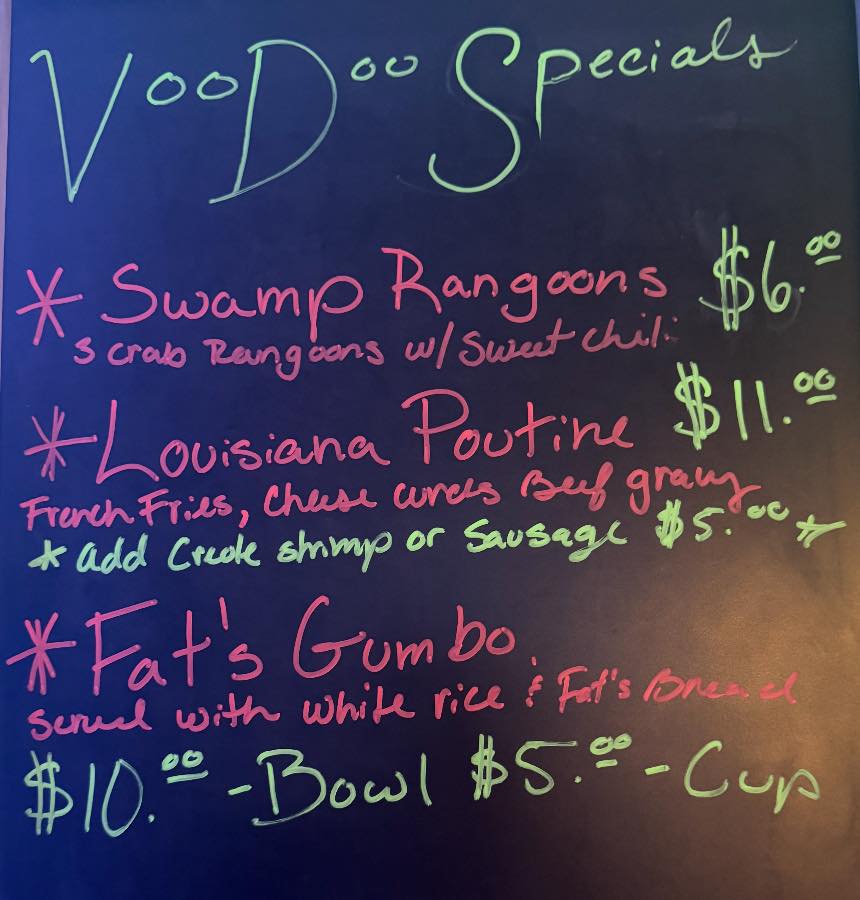 VooDoo Specials
* Swamp Rangoons $6.00
3 crab Rangoons w/ Sweet chili
* Louisiana Poutine $11.00
French Fries, Cheese curds Beef gravy
* add Creole shrimp or Sausage $5.00 *
* Fat's Gumbo
served with white rice & Fat's Bread
$10.00 - Bowl $5.00 - Cup